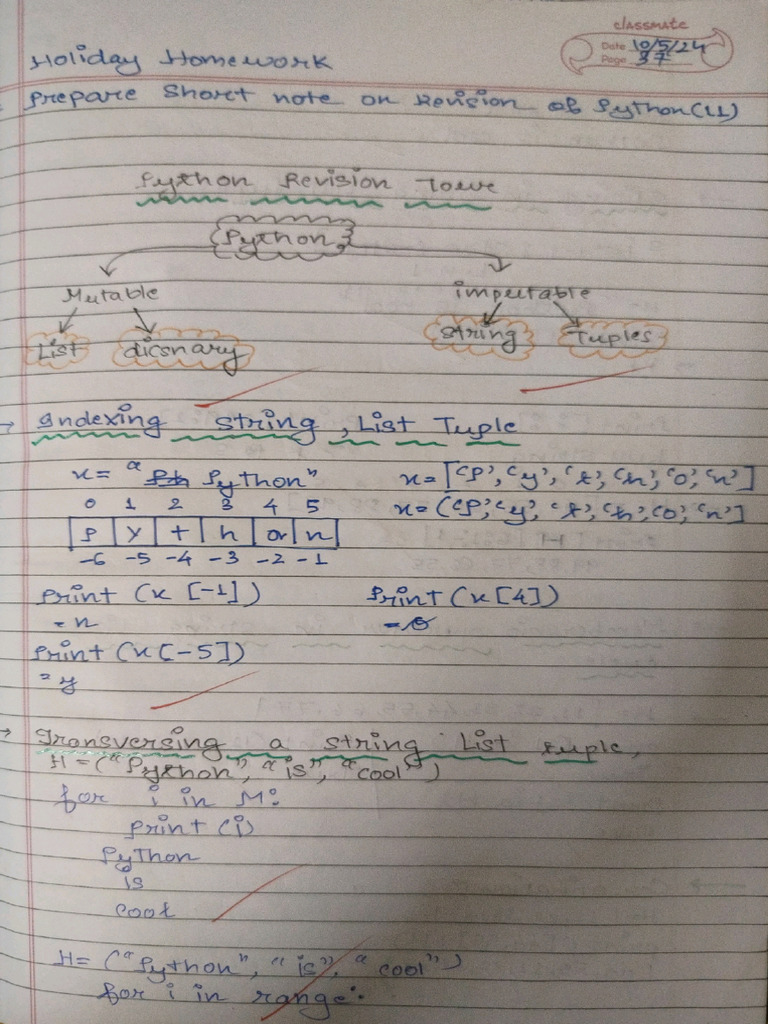 classmate
Date 10/5/24
Page 37
Holiday Homework
Prepare Short note on Revision of Python(11)
Python Revision Toure
Python
Mutable imputable
List dicsnary String Tuples
→ Indexing string, List Tuple
x= "Python" x=['P','y','t','h','o','n']
0 1 2 3 4 5 x=('P','y','t','h','o','n']
P y t h o n
-6 -5 -4 -3 -2 -1
Print (x [-1]) Print (x[4])
= n = o
Print (x[-5])
= y
→ Transversing a string List tuple,
H = ("Python", "is", "cool")
for i in M:
print (i)
Python
is
cool
H= ("Python", "is", "cool")
for i in range: